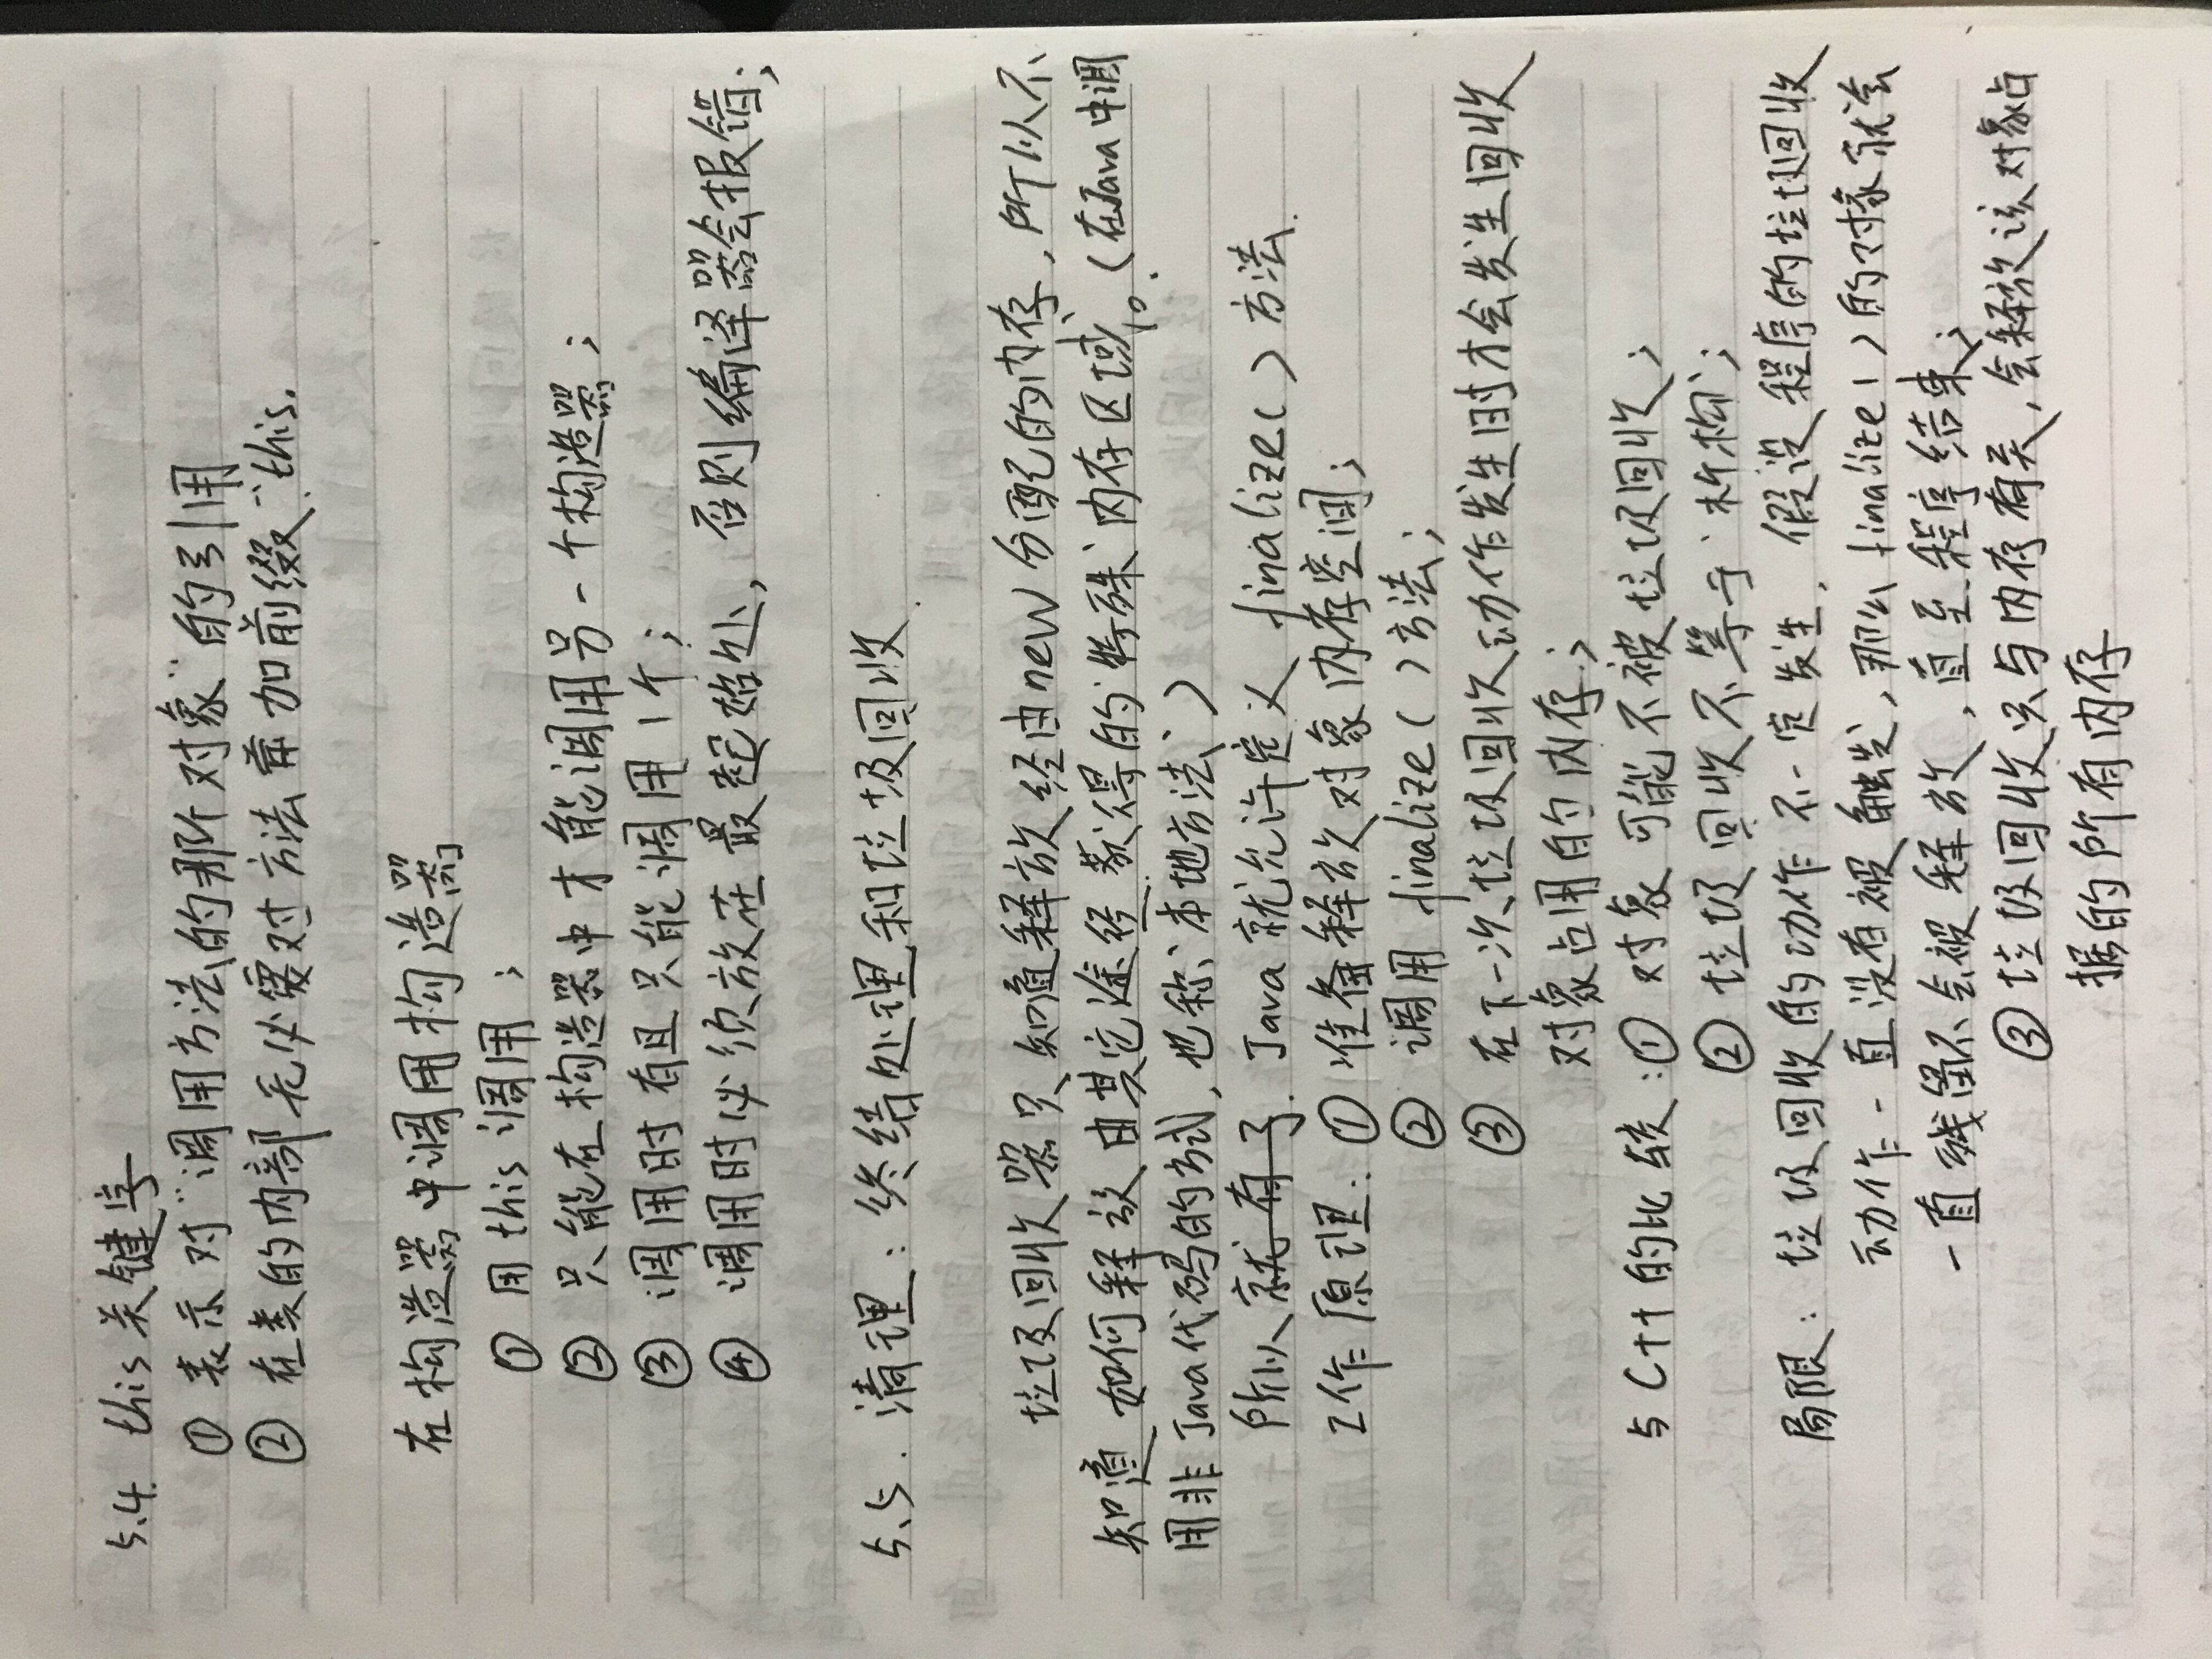 5.4. this关键字
① 表示对"调用方法的那个对象"的引用
② 在类的内部无必要对方法前加前缀"this.
在构造器中调用构造器
① 用this调用;
② 只能在构造器中才能调用另一个构造器;
③ 调用时有且只能调用1个;
④ 调用时必须放在最起始处,否则编译器会报错;
5.5. 清理:终结处理和垃圾回收.
垃圾回收器只知道释放经由new分配的内存,所以不
知道如何释放由其它途径获得的'特殊'内存区域'。(在Java中调
用非Java代码的方式,也称'本地方法')
所以就有了. Java就允许定义finalize()方法.
工作原理:① 准备释放对象内存空间;
② 调用finalize()方法;
③ 在下一次垃圾回收动作发生时才会发生回收
对象占用的内存;
与C++的比较:① 对象可能不被垃圾回收;
② 垃圾回收不等于'析构';
局限:垃圾回收的动作不一定发生,假设程序的垃圾回收
动作一直没有被触发,那么finalize()的对象就会
一直残留不会被释放,直至程序结束;
③ 垃圾回收只与内存有关,会释放该对象占
据的所有内存